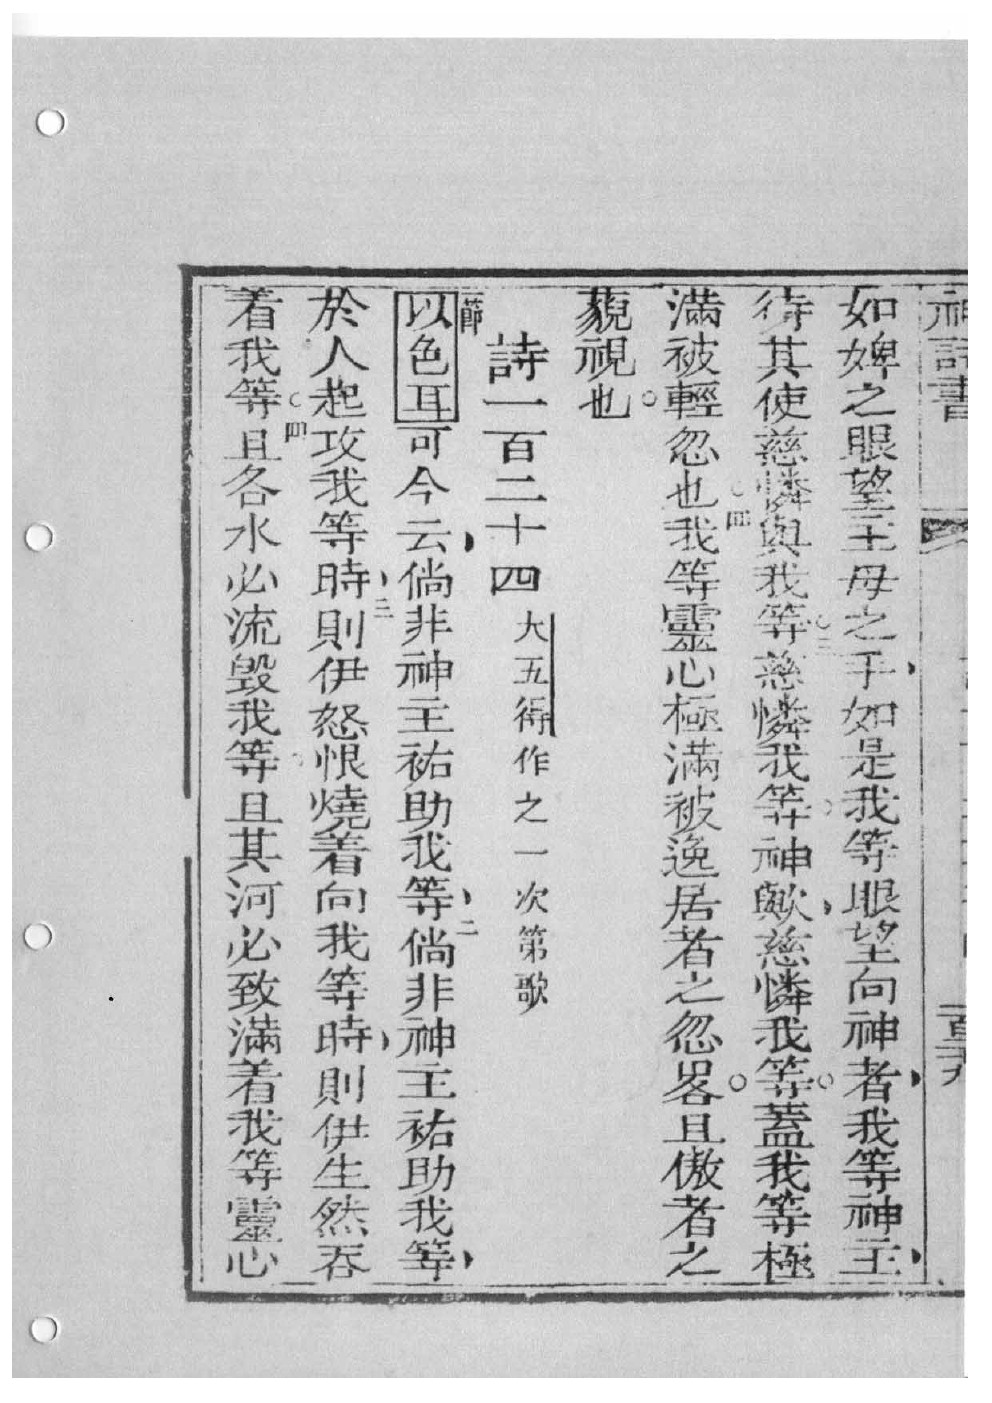 神詩書 一百二十九
如婢之眼望主母之手如是我等眼望向神者我等神主
待其使慈憐與我等○三慈憐我等神歟慈憐我等○蓋我等極
滿被輕忽也○四我等靈心極滿被逸居者之忽畧○且傲者之
藐視也○
詩一百二十四 大五得作之一次第歌
節以色耳可今云倘非神主祐助我等二倘非神主祐助我等
於人起攻我等時三則伊怒恨燒着向我等時則伊生然吞
着我等○四且各水必流毀我等且其河必致滿着我等靈心